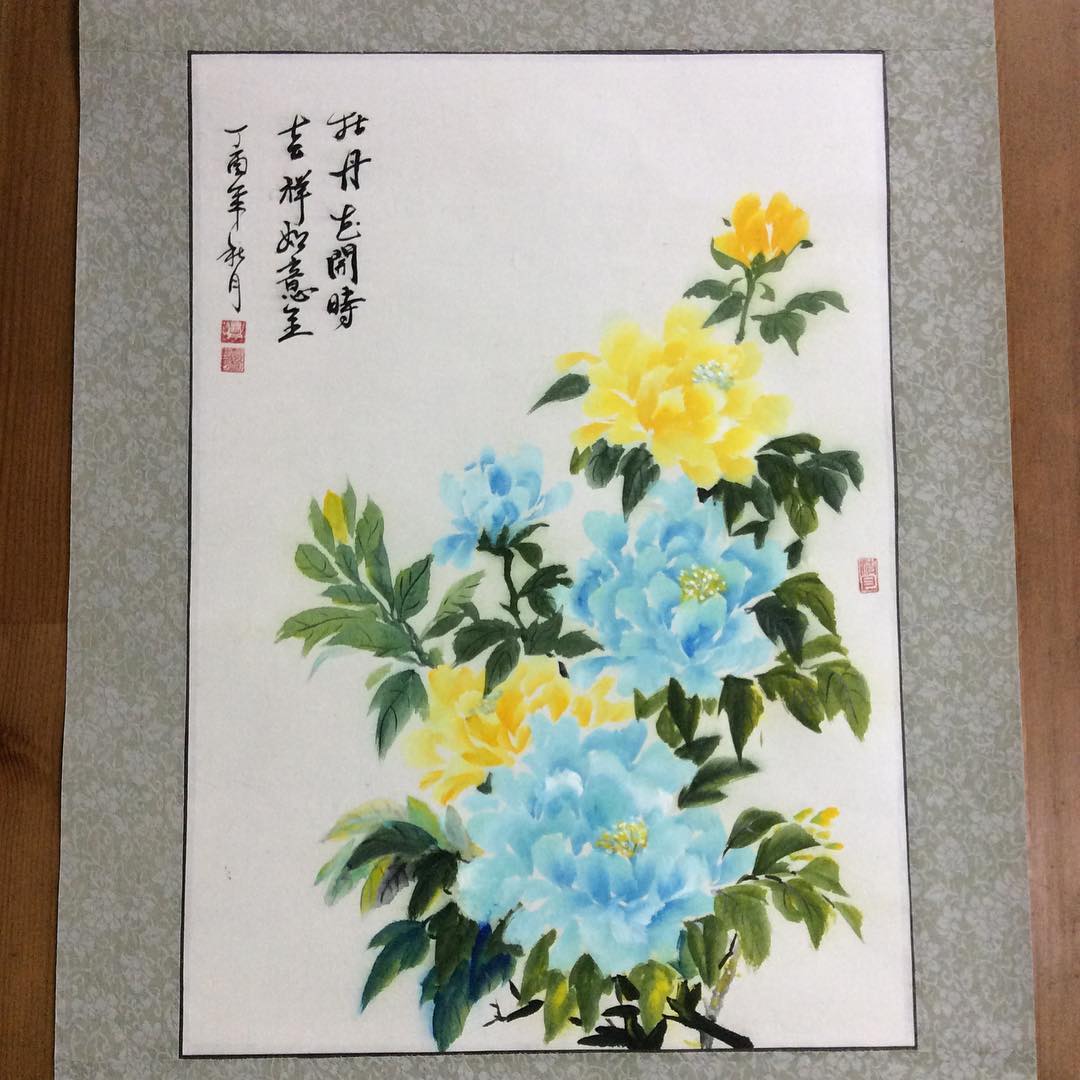 牡丹花開時
吉祥如意
丁酉年秋月